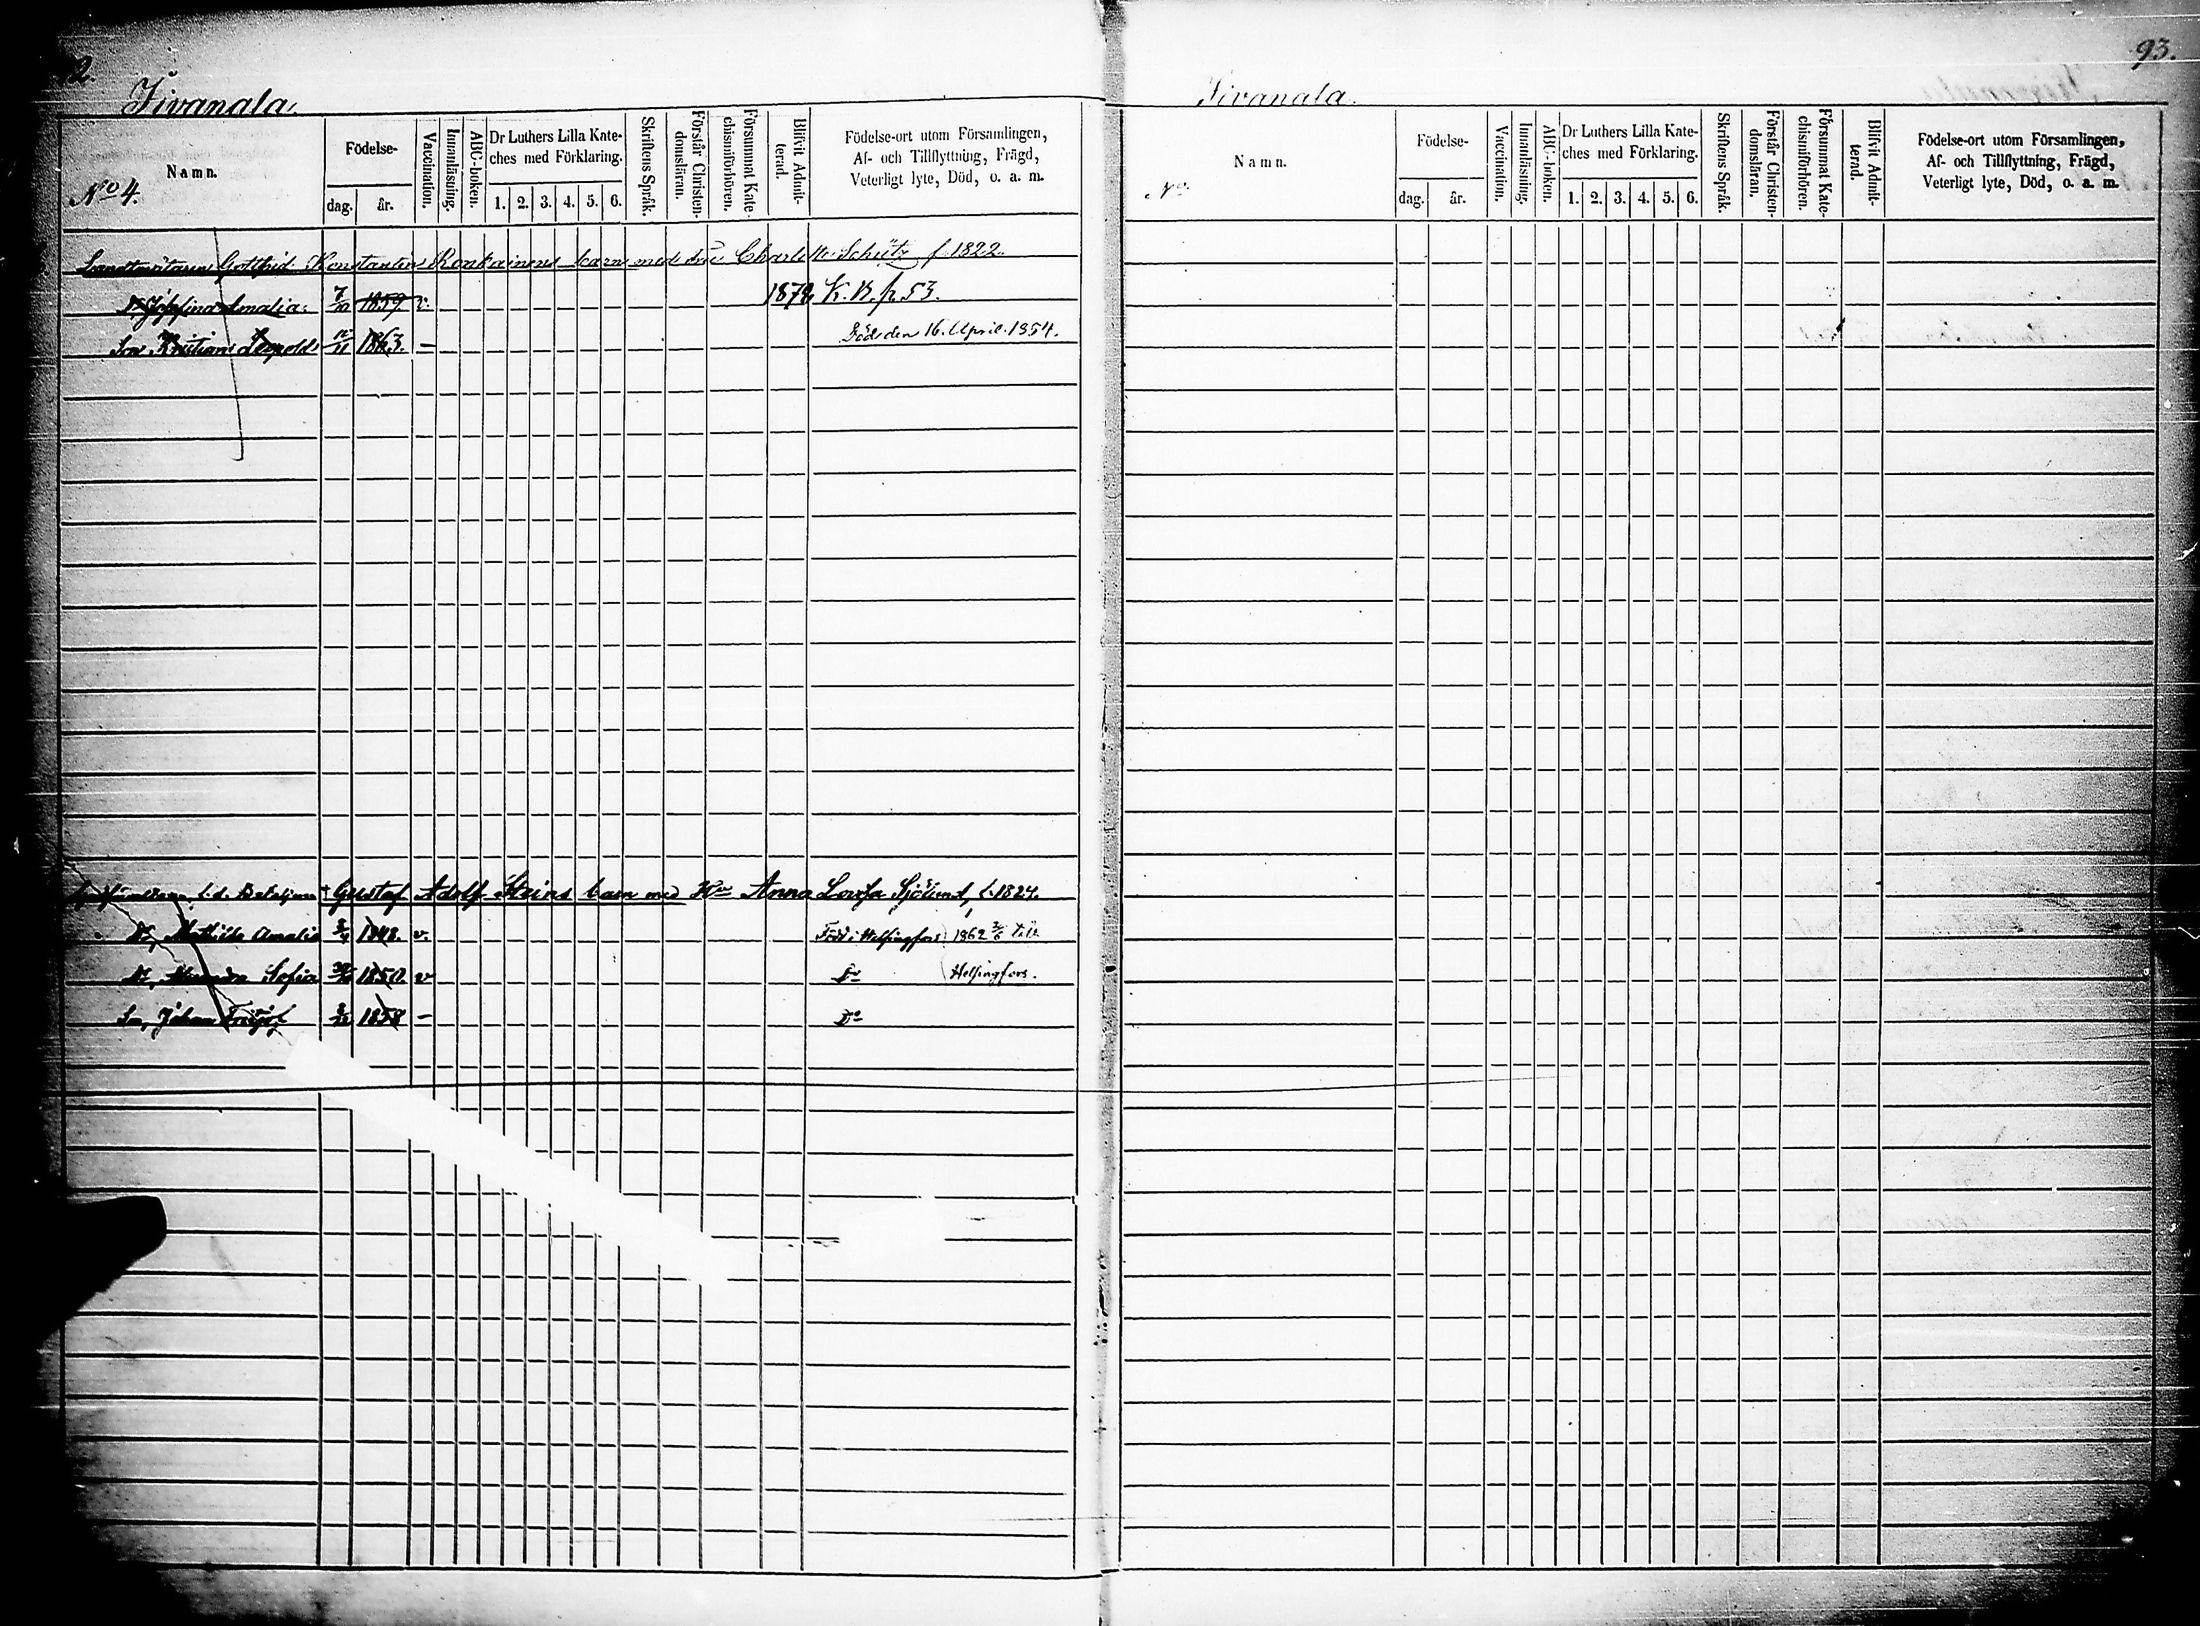 2.
Sivanala.
Namn.
No 4.
Födelse-
dag.
år.
Vaccination.
Innanläsning.
ABC-boken.
Dr Luthers Lilla Kate-
ches med Förklaring.
1. 2. 3. 4. 5. 6.
Skriftens Språk.
Förstår Christen-
domsläran.
Försummat Kate-
chismiförhören.
Blifvit Admit-
terad.
Födelse-ort utom Församlingen,
Af- och Tillflyttning, Frägd,
Veterligt lyte, Död, o. a. m.
Landtmätaren Gottfrid Konstantin Ronkainens barn med Charlotta Schütz f. 1822.
Amalia 7/10 1859. v. 1872 K. B. p. 53.
Son Kristian Leopold 1863. – Död den 16. April. 1854.
Gustaf Adolf Steins barn med Hu Anna Lovisa Sjölund, f. 1824.
Dr, Mathilda Amalia 1848. v. Född i Helsingfors 1862 3/6 till
Dr, Sofia 1850. v Do Helsingfors.
Son, Johan Fritjof 1858 – Do
93.
Sivanala.
Namn.
No
Födelse-
dag.
år.
Vaccination.
Innanläsning.
ABC-boken.
Dr Luthers Lilla Kate-
ches med Förklaring.
1. 2. 3. 4. 5. 6.
Skriftens Språk.
Förstår Christen-
domsläran.
Försummat Kate-
chismiförhören.
Blifvit Admit-
terad.
Födelse-ort utom Församlingen,
Af- och Tillflyttning, Frägd,
Veterligt lyte, Död, o. a. m.